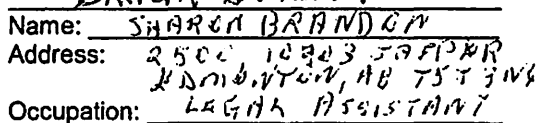 Name: SHARON BRANDON
Address: 2500 10303 JASPER
EDMONTON, AB T5J 3N6
Occupation: LEGAL ASSISTANT